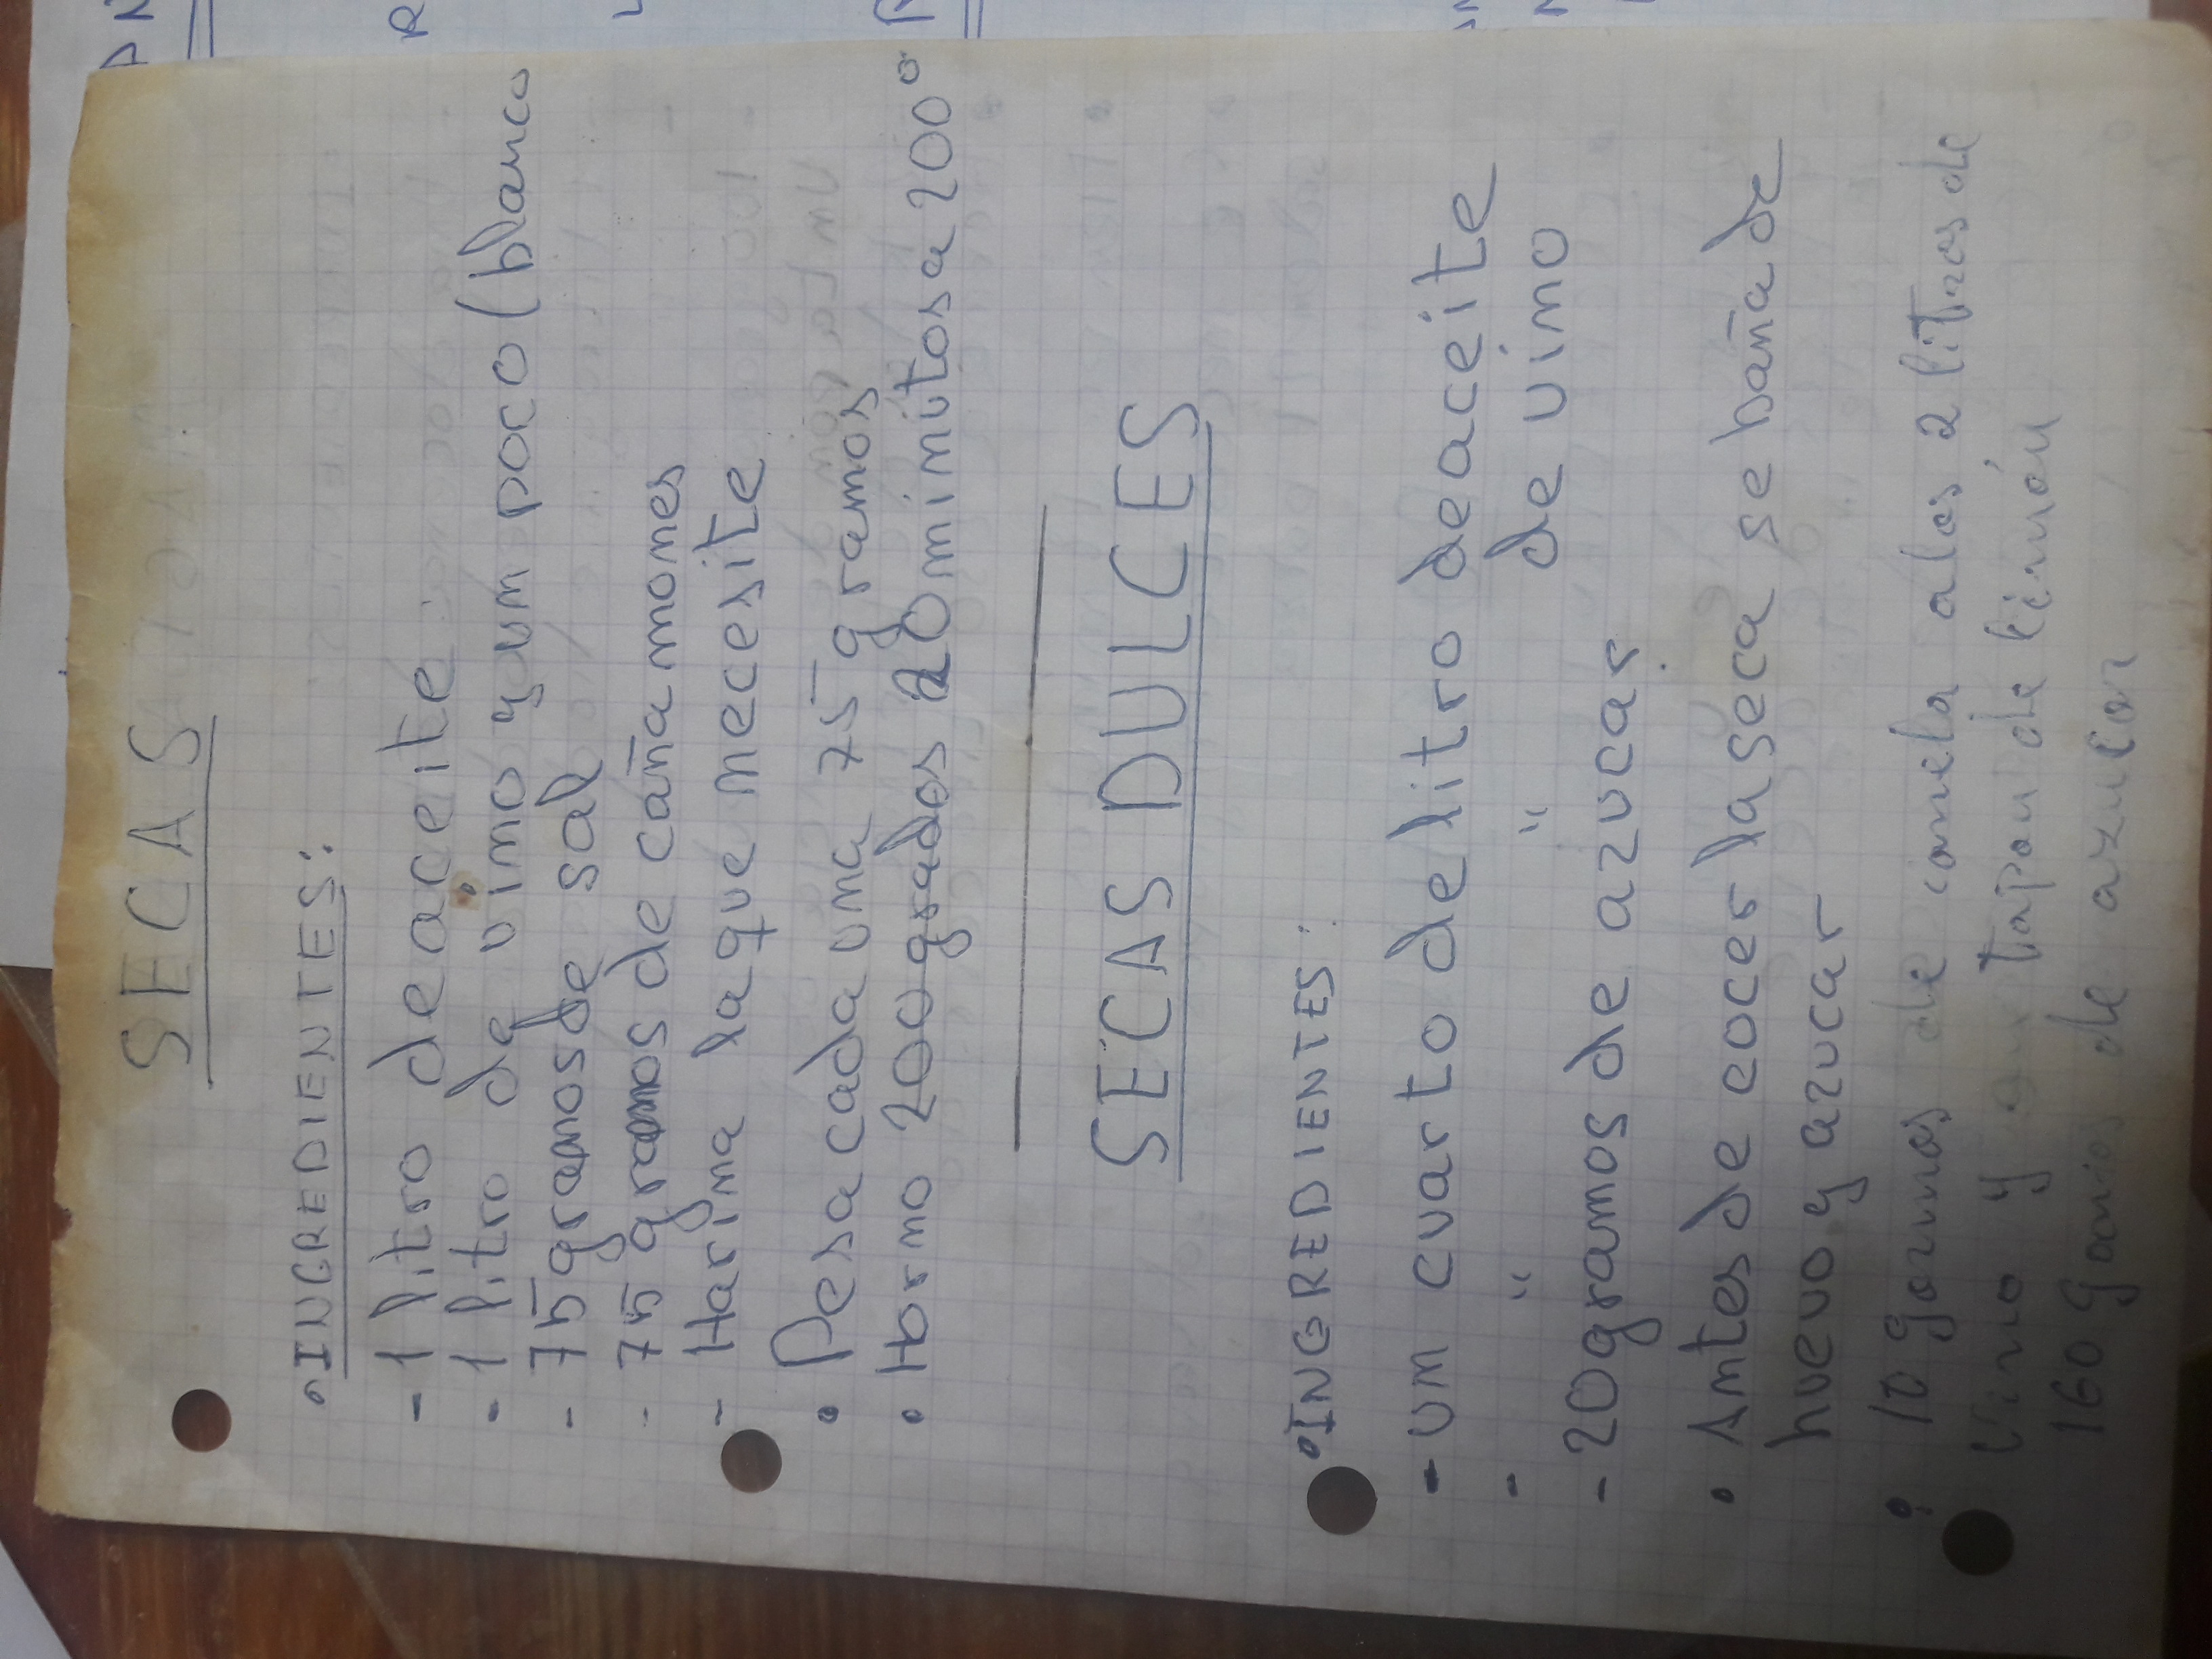 SECAS
• INGREDIENTES:
- 1 litro de aceite
- 1 litro de vino y un poco (blanco
- 75 gramos de sal
- 75 gramos de cañamones
- Harina la que necesite
• Pesa cada una 75 gramos
• Horno 200 grados 20 minutos a 200º
SECAS DULCES
• INGREDIENTES:
- un cuarto de litro de aceite
- " " de vino
- 20 gramos de azucar
• Antes de cocer la seca se baña de
huevo y azucar
• 10 gramos de canela a los 2 litros de
vino y tapon de limón
160 gramos de azucar